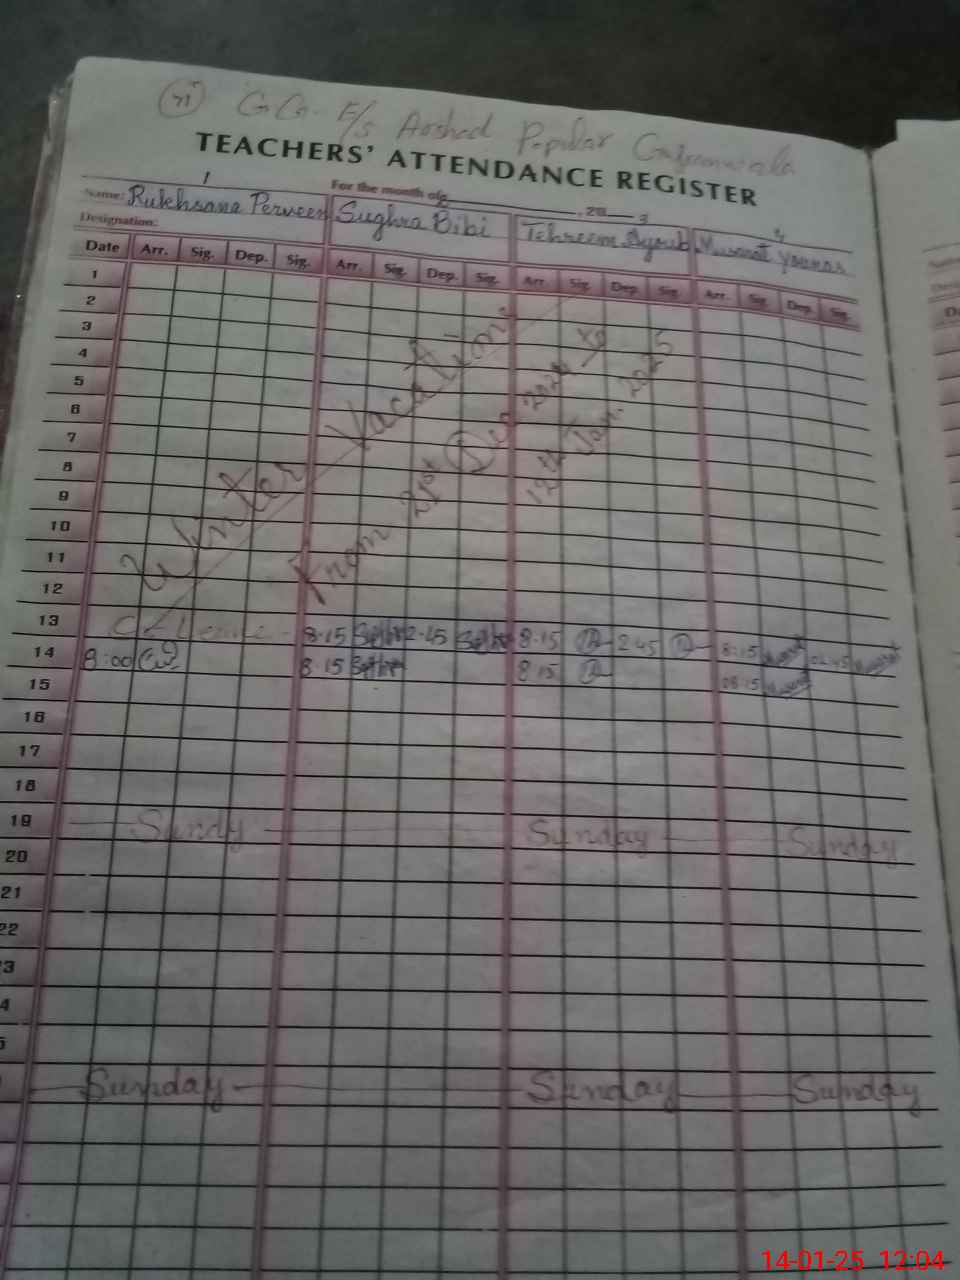 G.G. E/S Arshad Popular
TEACHERS' ATTENDANCE REGISTER
For the month of , 20
1 3 4
Name: Rukhsana Perveen Sughra Bibi Tehreem Ayoub Musarat Younas
Designation:
Date Arr. Sig. Dep. Sig. Arr. Sig. Dep. Sig. Arr. Sig. Dep. Sig. Arr. Sig. Dep. Sig.
1
2
3
4
5
6
7
8
9
10
11
12
Winter Vacation
From 21st Dec 2024 to
12th Jan. 2025
13 C/Leave 8:15 2:45 8:15 2:45 8:15 02:45
14 8:00 8:15 8:15 08:15
15
16
17
18
19 Sundy Sunday Sunday
20
21
22
3
4
5
Sunday Sunday Sunday
14-01-25 12:04